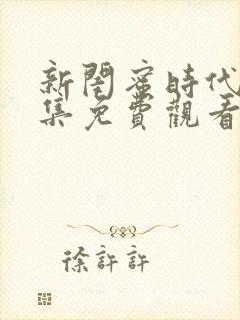 新閨蜜時代
集免費觀看
徐許許